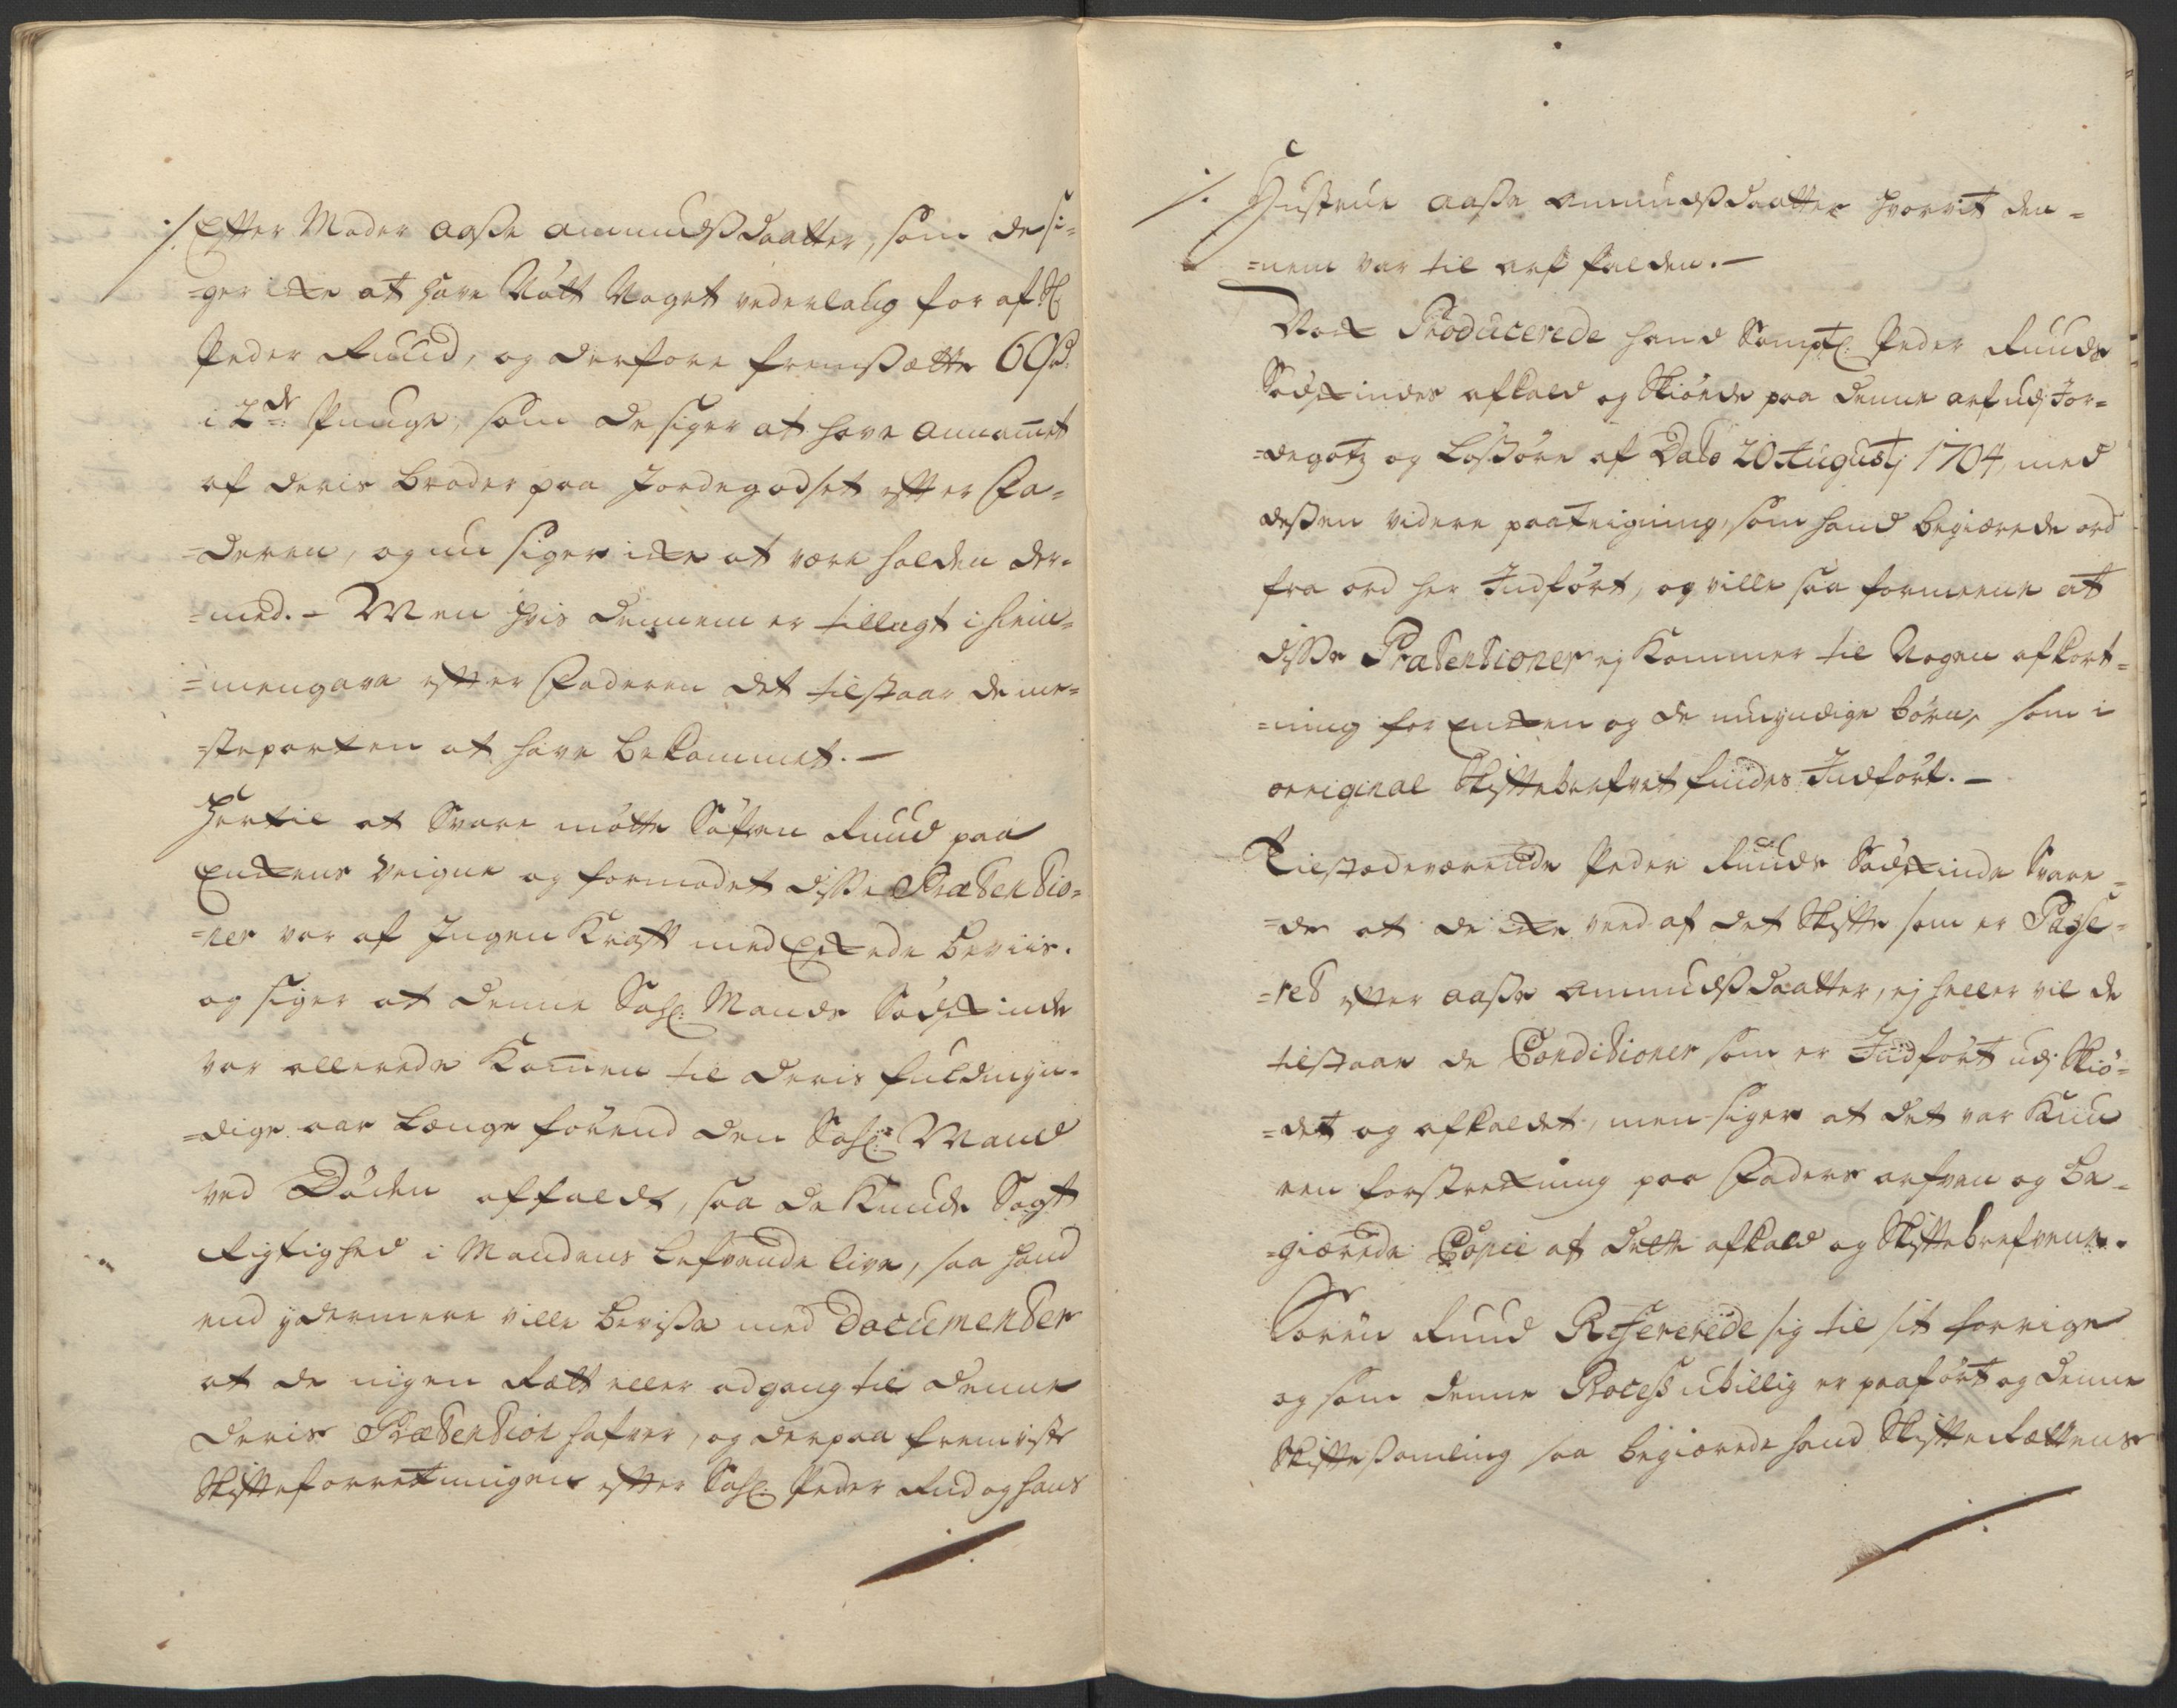 ./. Efter Moder Aaße Ammundßdaatter, som de si-
=ger icke at have Nött Noget vederlaug for af Sl
Peder Ruud, og derfore fremsætte 60 rd.
i 2de Punge, som de siger at have annamet
af deris broder paa Jordegodset efter Fa=
=deren, og nu siger icke at være holden der-
=med. - Men hvis dennem er tillagt i hiem=
=mengava efter Faderen det tilstaar de me=
=steparten at have bekommet. -
Hertil at Svare mötte Söfren Ruud paa
Enckens Veigne og formodet disse Prætentio=
=ner var af Ingen Kraft med beviis.
og siger at denne Sahl: Mands Södskinde
var allerede Kommen til deris fuldmyn-
=dige aar længe förend den Sahl: Mand
ved Döden affaldt, saa de Kunde Sögt
Rigtighed i Mandens Lefvende live, saa hand
end ydermere ville bevisse med Documenter
at de ingen Rætt eller adgang til denne
deris Prætention hafver, og derpaa fremviste
Skifteforretningen efter Sahl: Peder Rud og hans
./. Hustrue Aaße Ammundßdaatter hvorvit den=
=nem var til arf falden. -
Nock Producerede hand Samptl: Peder Ruuds
Södskindes afkald og Skiöede paa denne arf udj Jor=
=degotz og Lößöre af Dato 20 Augustj 1704, med
deßen videre paateigning, som hand begiærede ord
fra ord her Indfört, og ville saa formeene at
disse Prætentioner ej Kommer til Nogen afkort=
=ning for Encken og de umyndige börn, som i
original Skiftebrefvet findes Indfört. -
Tilstædeværende Peder Ruuds Södskinde Svare=
=de at de icke veed af det Skifte som er Paße=
=ret efter Aaße Ammundßdaatter, ej heller vil de
tilstaae de Conditioner som er Indfört udj Skiö=
=det og afkaldet, men siger at det var Kun
een forstreckning paa Faders arfven og be=
=giærede Copie af dette afkald og Skiftebrefvene.
Sören Ruud Refererede sig til sit forrige
og som denne Proceß ubillig er paafört og denne
Skiftesamling saa begiærede hand Skifte Rættens